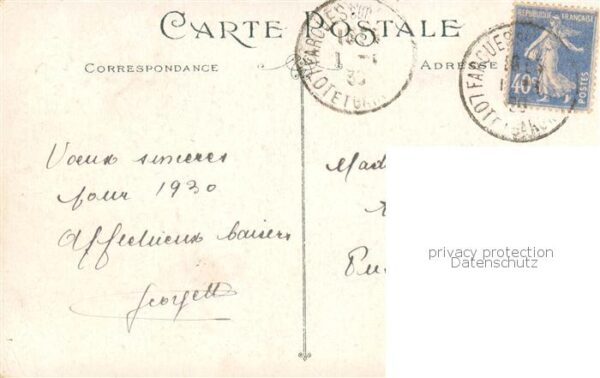 CARTE POSTALE
CORRESPONDANCE
ADRESSE
FARGUES
LOT ET GAR
1 - 1
30
FARGUES
LOT ET GARON
30
REPUBLIQUE FRANÇAISE
40c
POSTES
Voeux sincères
pour 1930
Affectueux baisers
Georgette
Mad
privacy protection
Datenschutz